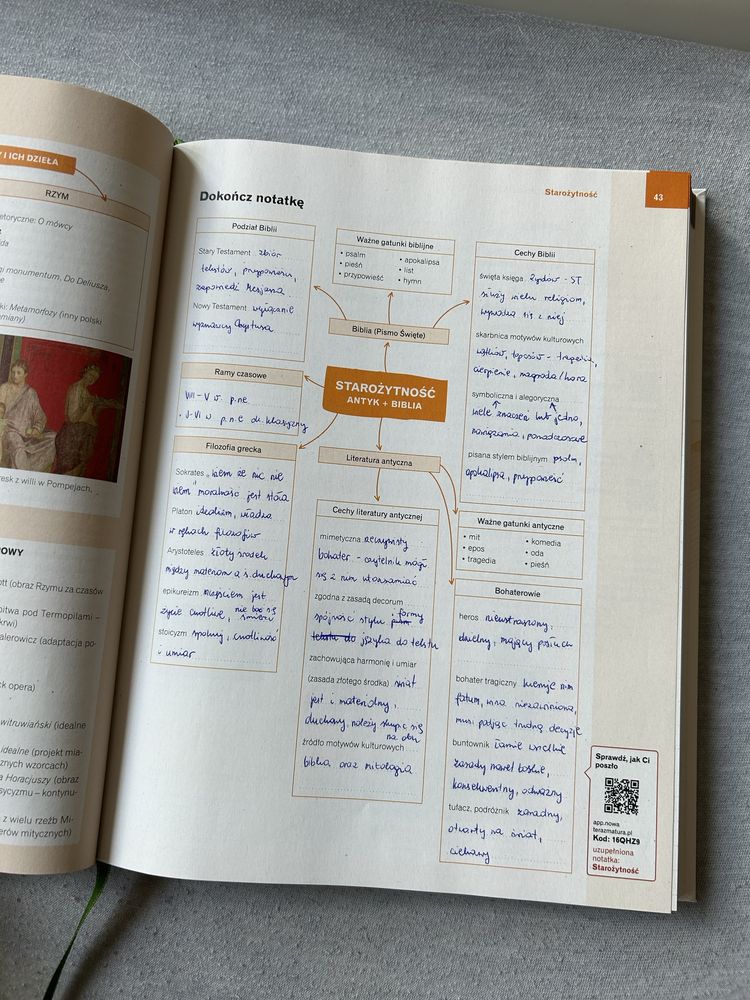 I ICH DZIEŁA
RZYM
O mówcy
monumentum, Do Deliusza,
Metamorfozy (inny polski
resk z willi w Pompejach,
POWY
ott (obraz Rzymu za czasów
bitwa pod Termopilami –
krwi)
alerowicz (adaptacja po-
ck opera)
witruwiański (idealne
idealne (projekt mia-
znych wzorcach)
a Horacjuszy (obraz
sycyzmu – kontynu-
z wielu rzeźb Mi-
erów mitycznych)
Starożytność
43
Dokończ notatkę
Podział Biblii
Stary Testament zbiór
tekstów, przypomina,
zapowiedź Mesjasza
Nowy Testament wyznawcy Chrystusa
Ważne gatunki biblijne
• psalm
• pieśń
• przypowieść
• apokalipsa
• list
• hymn
Cechy Biblii
święta księga Żydów - ST
wielu religiom,
się z niej
skarbnica motywów kulturowych
wątków, toposów - tragedia,
cierpienie, nagroda/kara
symboliczna i alegoryczna
wiele znaczeń lub jedno,
ponadczasowe
pisana stylem biblijnym psalm,
apokalipsa, przypowieść
Biblia (Pismo Święte)
Ramy czasowe
VIII - V w. p.n.e.
w p.n.e ok. klasyczny
STAROŻYTNOŚĆ
ANTYK + BIBLIA
Filozofia grecka
Sokrates „wiem że nic nie
wiem" moralność jest stała
Platon idealizm, władza
w rękach filozofów
Arystoteles złoty środek
między materią a s. duchowym
epikureizm szczęściem jest
życie cnotliwe, nie bać się
śmierci
stoicyzm spokój, cnotliwość
i umiar
Literatura antyczna
Cechy literatury antycznej
mimetyczna rzeczywisty
bohater - czytelnik mógł
się z nim utożsamiać
zgodna z zasadą decorum
spójność stylu, formy
języka do tekstu
zachowująca harmonię i umiar
(zasada złotego środka) świat
jest i materialny,
duchowy, należy skupić się
na obu
źródło motywów kulturowych
biblia oraz mitologia
Ważne gatunki antyczne
• mit
• epos
• tragedia
• komedia
• oda
• pieśń
Bohaterowie
heros nieustraszony,
dzielny, mający posłuch
bohater tragiczny kieruje nim
fatum, wina niezawiniona,
musi podjąć trudną decyzję
buntownik łamie wszelkie
zasady nawet boskie,
konsekwentny, odważny
tułacz, podróżnik zaradny,
otwarty na świat,
ciekawy
Sprawdź, jak Ci
poszło
app.nowa
terazmatura.pl
Kod: 16QHZ9
uzupełniona
notatka:
Starożytność